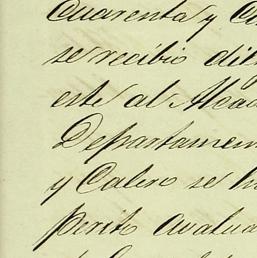 Cuarenta y C
se recibio dil
este al Alca
Departamen
y Calero se h
perito avalua